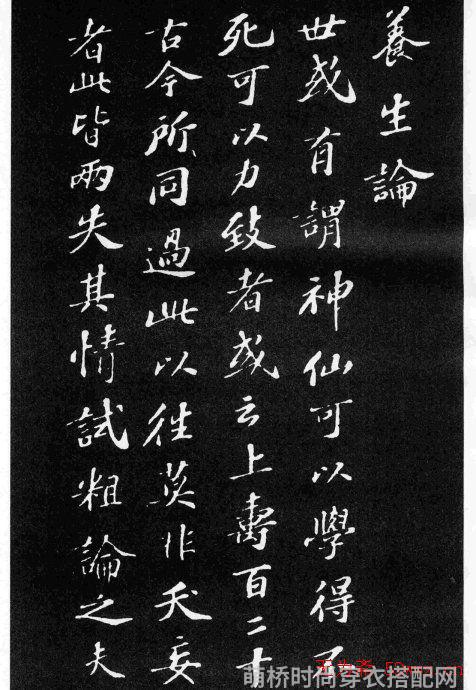 養生論
世或有謂神仙可以學得不
死可以力致者或云上壽百二十
古今所同過此以往莫非夭妄
者此皆兩失其情試粗論之夫
萌桥时尚穿衣搭配网